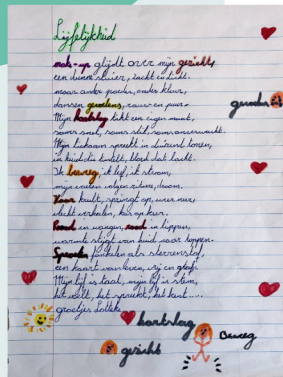 Lijfelijkheid
make-up glijdt over mijn gezicht,
een dunne sluier, zacht en licht.
maar onder poeder, onder kleur,
dansen gevoelens, rauw en puur.
Mijn hartslag tikt een eigen maat,
soms snel, soms stil, soms onverwacht.
Mijn lichaam spreekt in duizend tonen,
in huid die tintelt, bloed dat lacht.
Ik beweeg, ik leef, ik stroom,
mijn voeten volgen ritme, droom.
Haar krult, springt op, weer neer,
vlecht verhalen, keer op keer.
Rood in wangen, rood in lippen,
warmte stijgt van huid naar toppen.
Sproeten fonkelen als sterrenstof,
een kaart van leven, vrij en
Mijn lijf is taal, mijn lijf is stem,
het voelt, het spreekt, het
groetjes Lotte
hartslag
Beweeg
gezicht